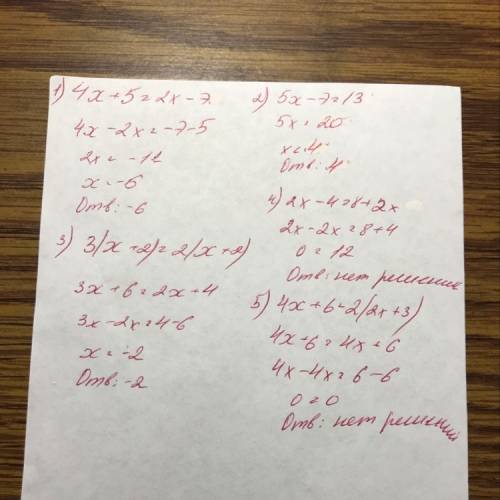 1) 4x+5=2x-7
4x-2x=-7-5
2x=-12
x=-6
Отв: -6
2) 5x-7=13
5x=20
x=4
Отв: 4
3) 3(x+2)=2(x+2)
3x+6=2x+4
3x-2x=4-6
x=-2
Отв: -2
4) 2x-4=8+2x
2x-2x=8+4
0=12
Отв: нет решения
5) 4x+6=2(2x+3)
4x+6=4x+6
4x-4x=6-6
0=0
Отв: нет решений